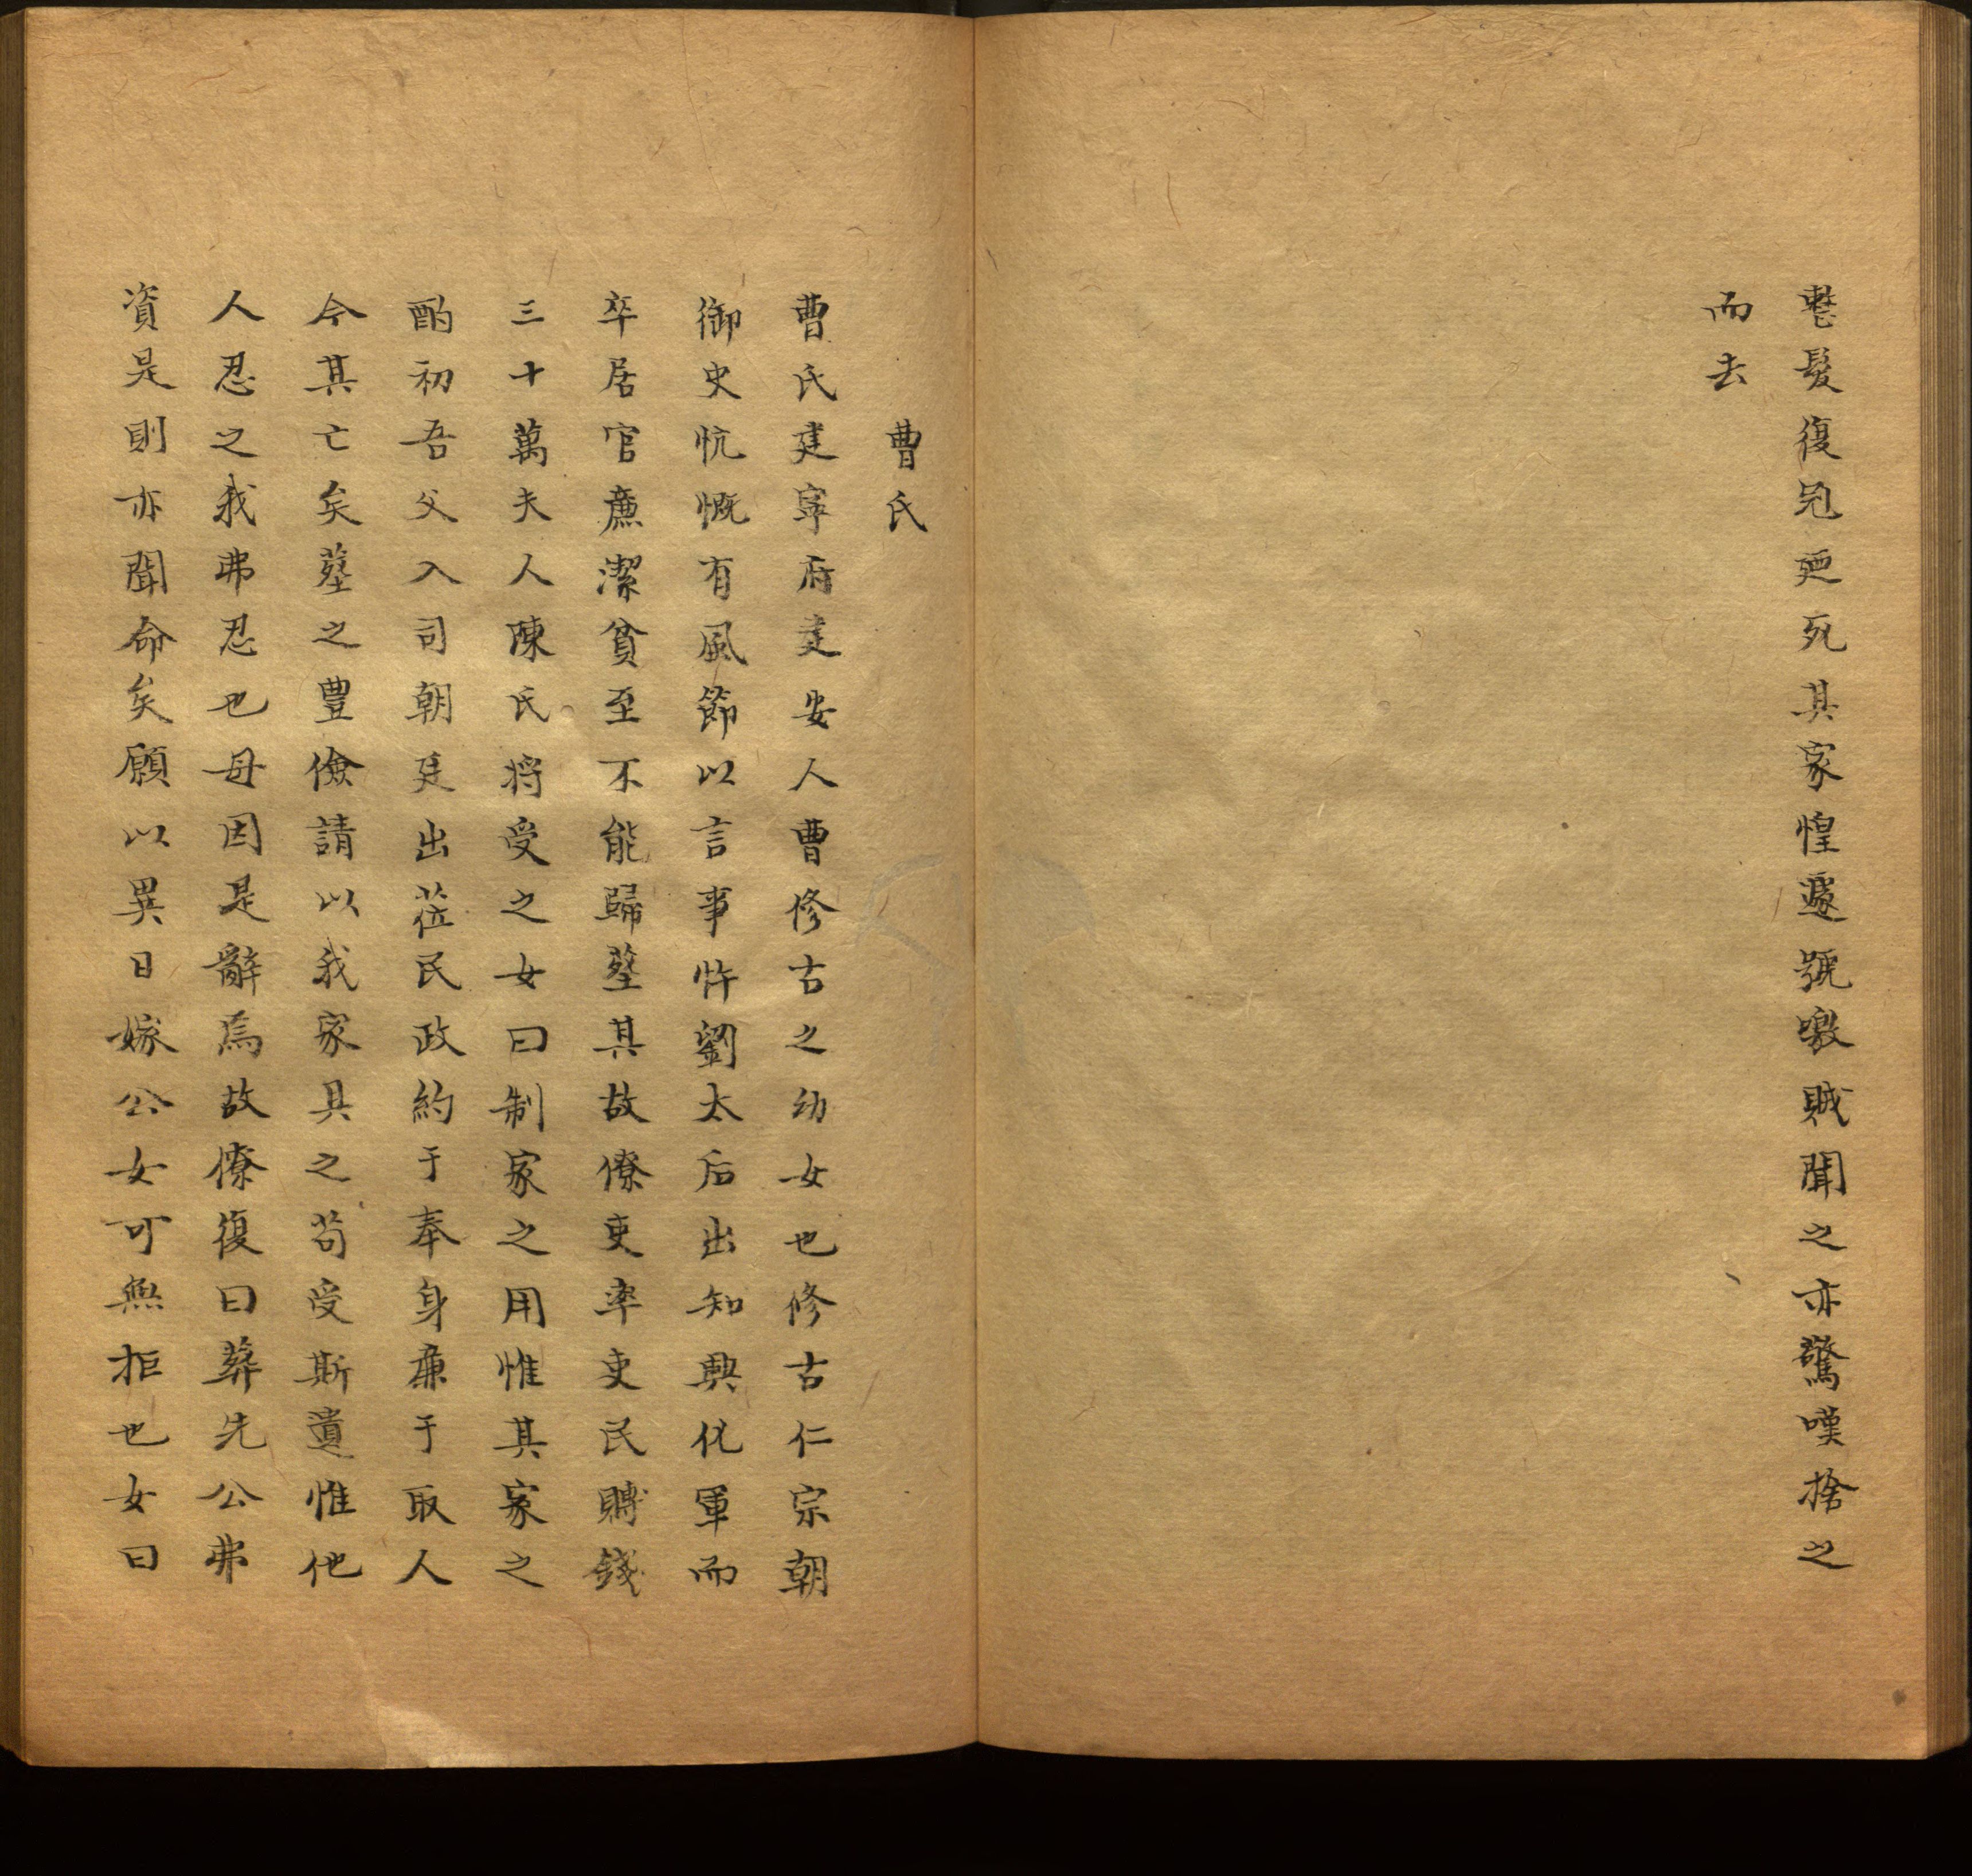 髪復兇廹死其家惶遽號噭賊聞之亦驚嘆捨之
而去
曹氏
曹氏建寧府建安人曹修古之幼女也修古仁宗朝
御史忼慨有風節以言事忤劉太后出知興化軍而
卒居官廉潔貧至不能歸塟其故僚吏率吏民賻錢
三十萬夫人陳氏将受之女曰制家之用惟其家之
酌初吾父入司朝廷出蒞民政約于奉身廉于取人
今其亡矣塟之豊儉請以我家具之苟受斯遺惟他
人忍之我弗忍也母因是辭焉故僚復曰葬先公弗
資是則亦聞命矣願以異日嫁公女可無拒也女曰